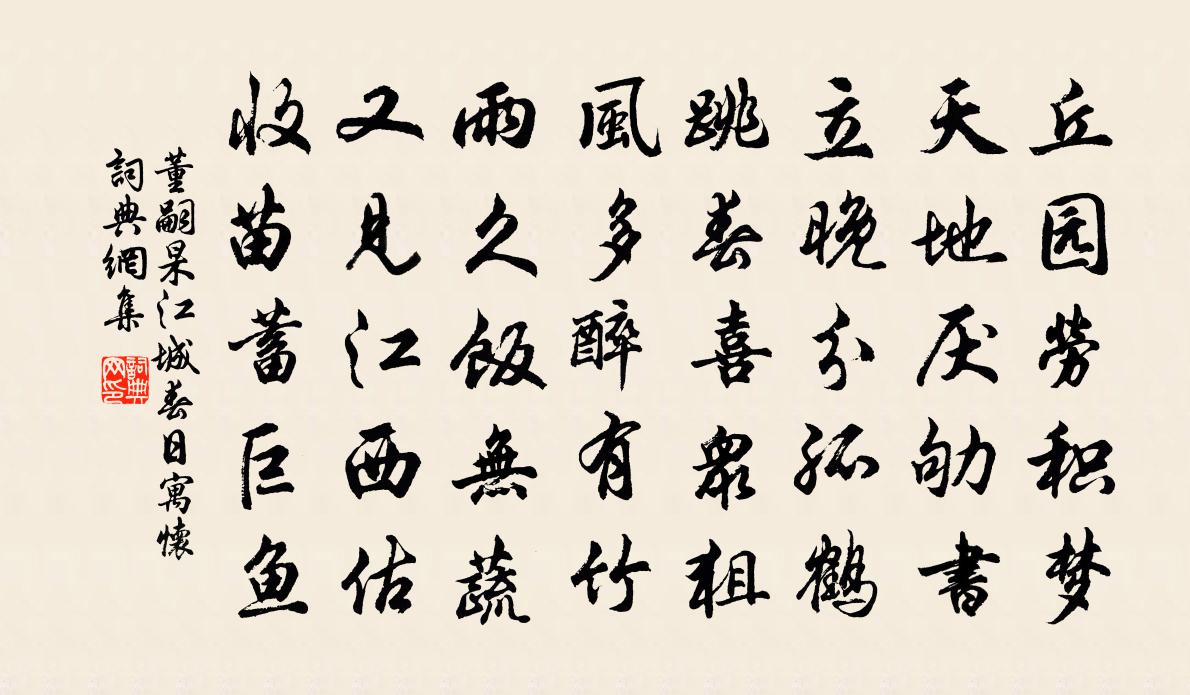 丘园勞积梦
天地厌劬書
立晚分孤鶴
跳春喜眾粗
風多醉有竹
雨久飯無蔬
又見江西估
收苗蓄巨鱼
董嗣杲江城春日寓懷
詞典網集
詞典网印